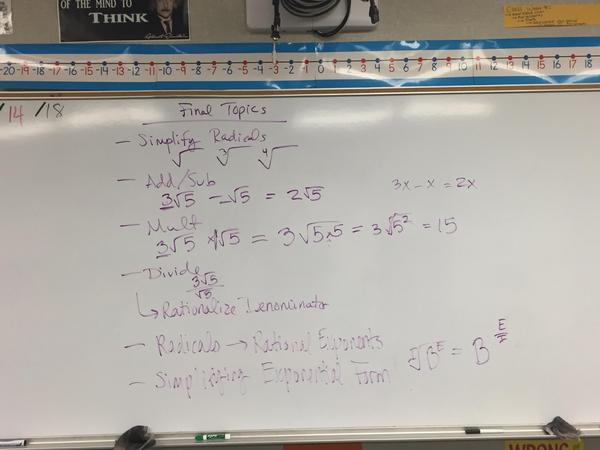 OF THE MIND TO
THINK
-20 -19 -18 -17 -16 -15 -14 -13 -12 -11 -10 -9 -8 -7 -6 -5 -4 -3 -2 -1 0 1 2 3 4 5 6 7 8 9 10 11 12 13 14 15 16 17 18
/14 /18
Final Topics
- Simplify Radicals
√ ∛ ∜
- Add/Sub
3√5 - √5 = 2√5
3x - x = 2x
- Mult
3√5 × √5 = 3√5×5 = 3√5² = 15
- Divide
3√5
√5
↳ Rationalize Denominator
- Radicals → Rational Exponents
- Simplifying Exponential Form
ᴵ√B^E = B^(E/I)
WRONG